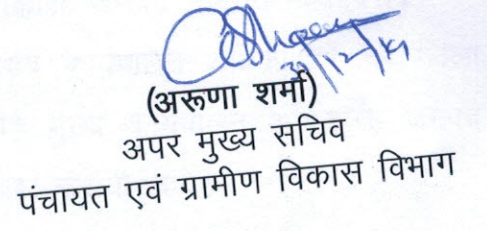 (अरूणा शर्मा)
अपर मुख्य सचिव
पंचायत एवं ग्रामीण विकास विभाग